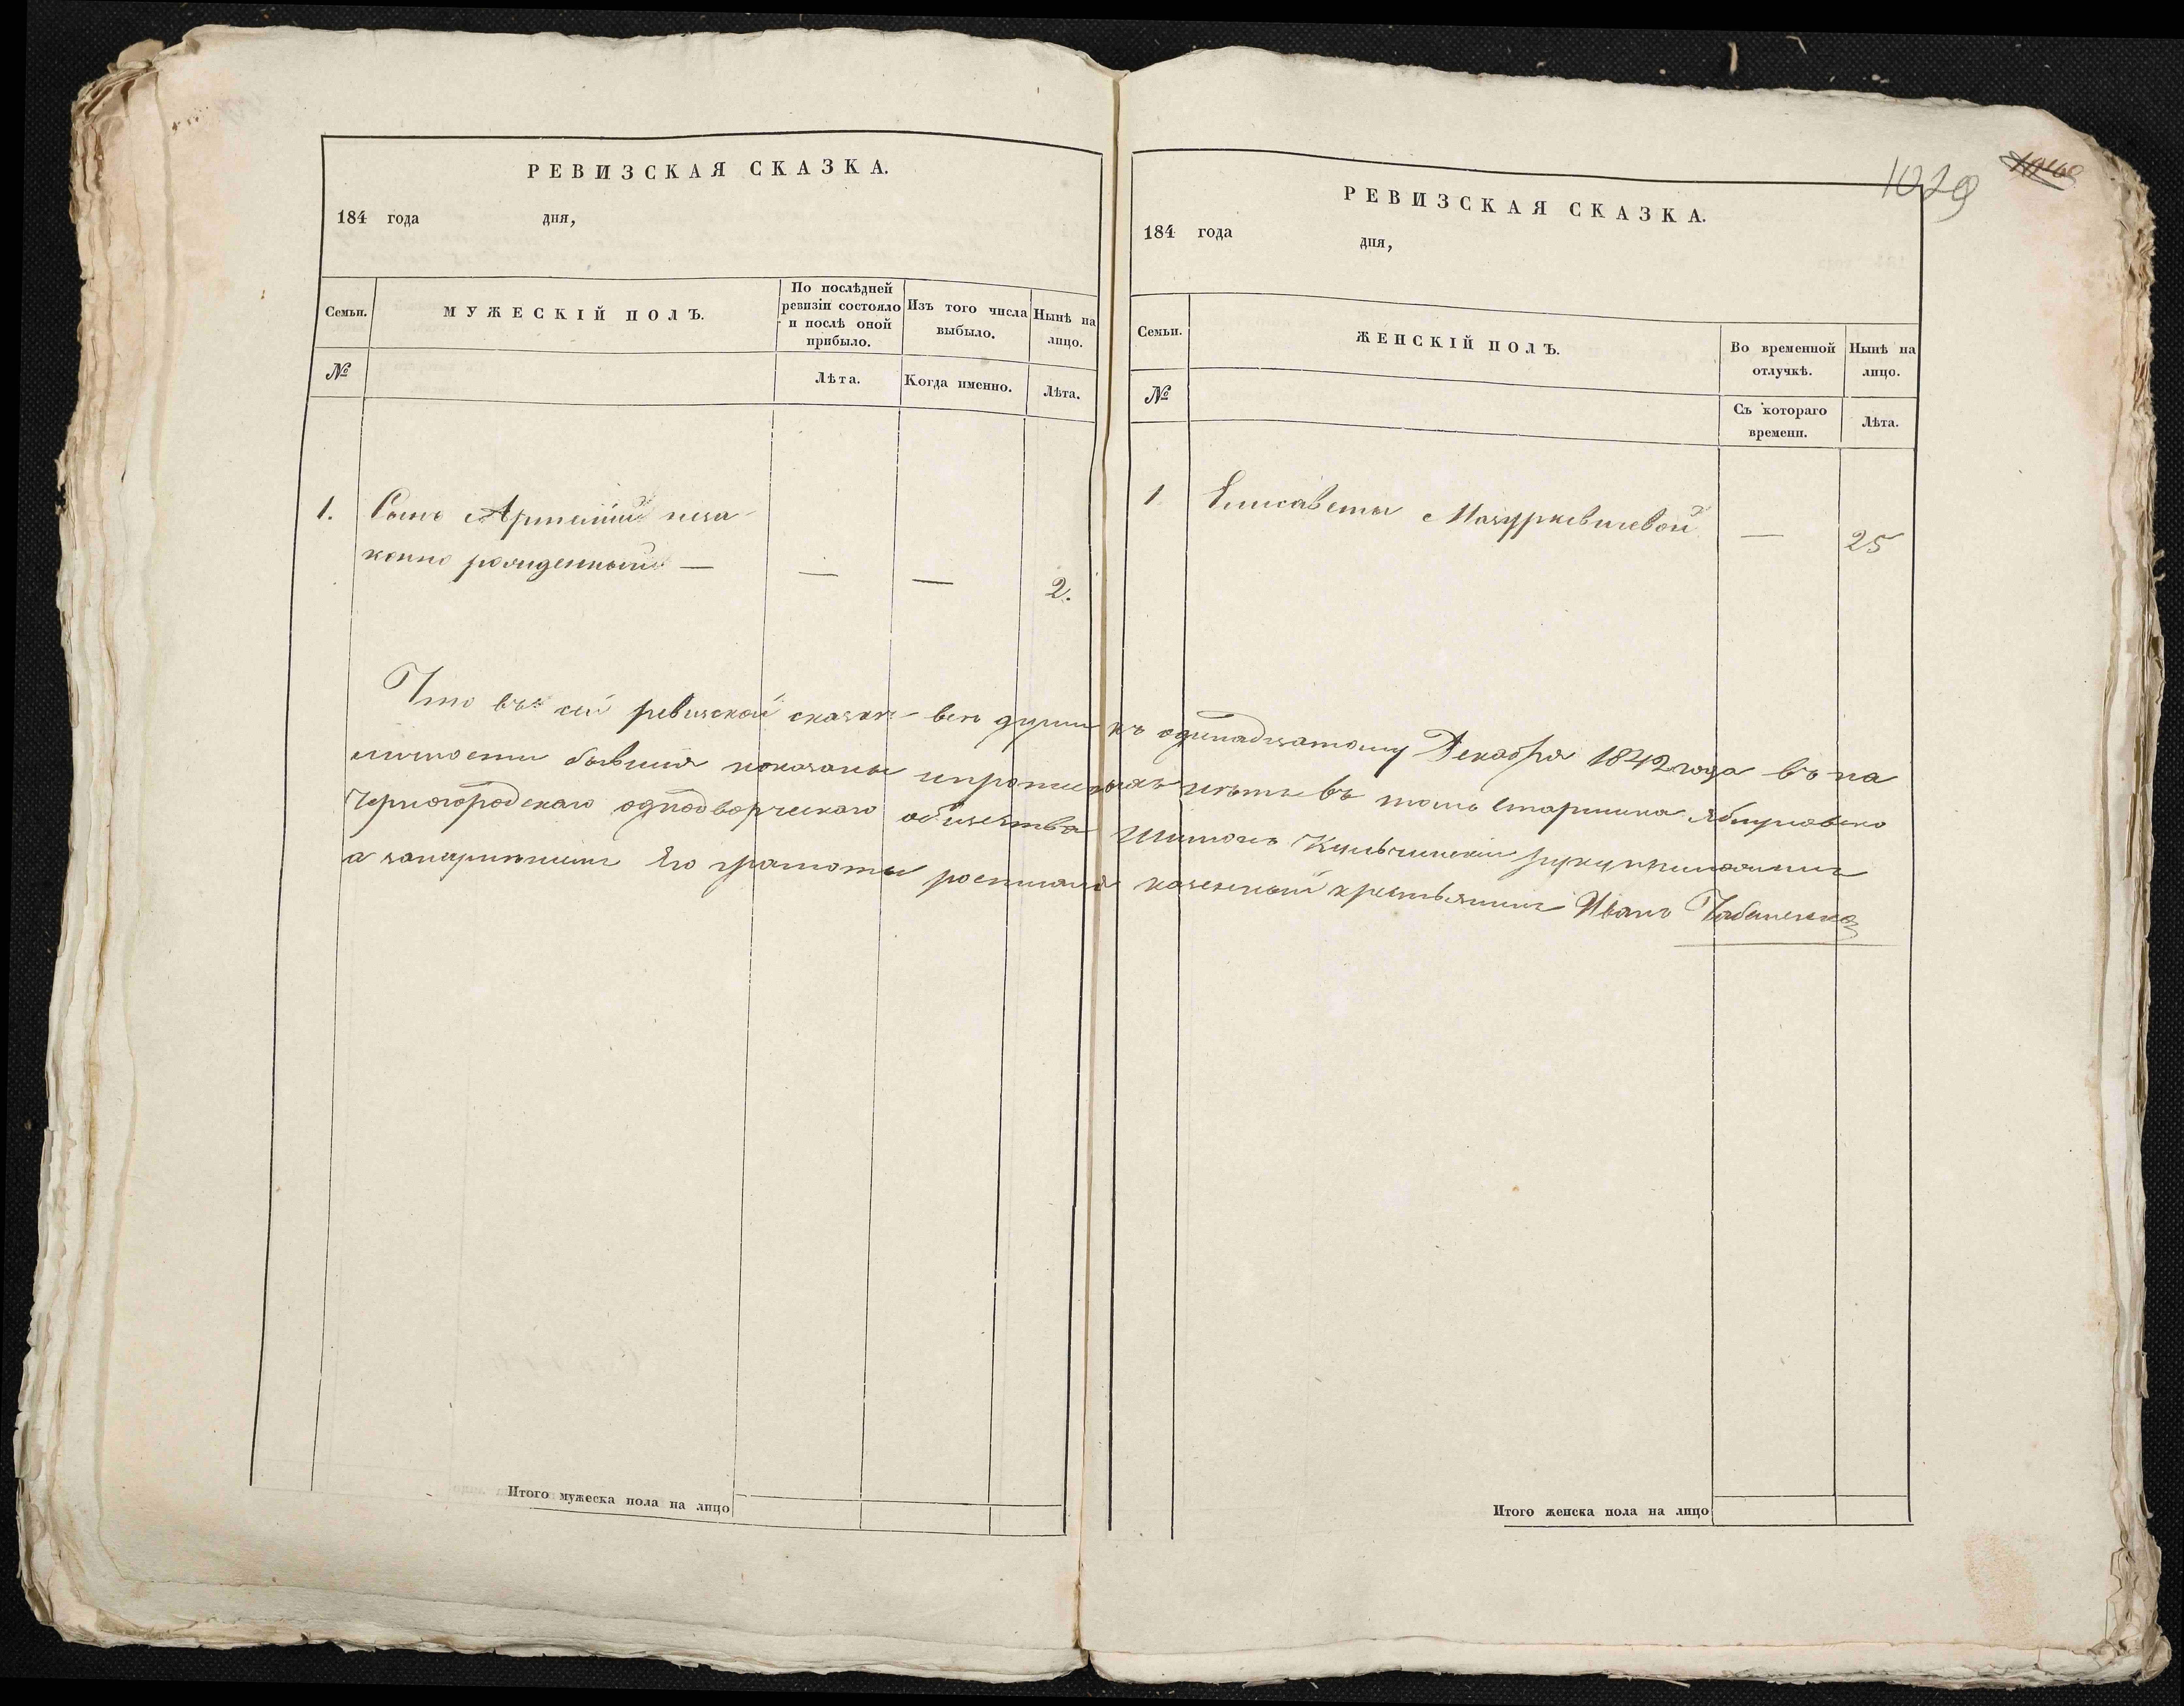 РЕВИЗСКАЯ СКАЗКА.
184 года дня,
Семьи.
МУЖЕСКІЙ ПОЛЪ.
По послѣдней
ревизіи состояло
и послѣ оной
прибыло.
Изъ того числа
выбыло.
Нынѣ на
лицо.
№
Лѣта.
Когда именно.
Лѣта.
1. Сынъ неза-
конно рожденный — — — 2.
1029
РЕВИЗСКАЯ СКАЗКА.
184 года дня,
Семьи.
ЖЕНСКІЙ ПОЛЪ.
Во временной
отлучкѣ.
Нынѣ на
лицо.
№
Съ котораго
времени.
Лѣта.
1 Елисаветы Мазуркевичевой — 25
Что въ сей ревизской сказкѣ всѣ души къ одинадцатому Декабря 1842 года въ на
личности бывшія показаны и нѣтъ въ томъ старшина
Черногородскаго однодворческаго общества
а его грамоты росписался казенный крестьянинъ Иванъ
Итого мужеска пола на лицо
Итого женска пола на лицо